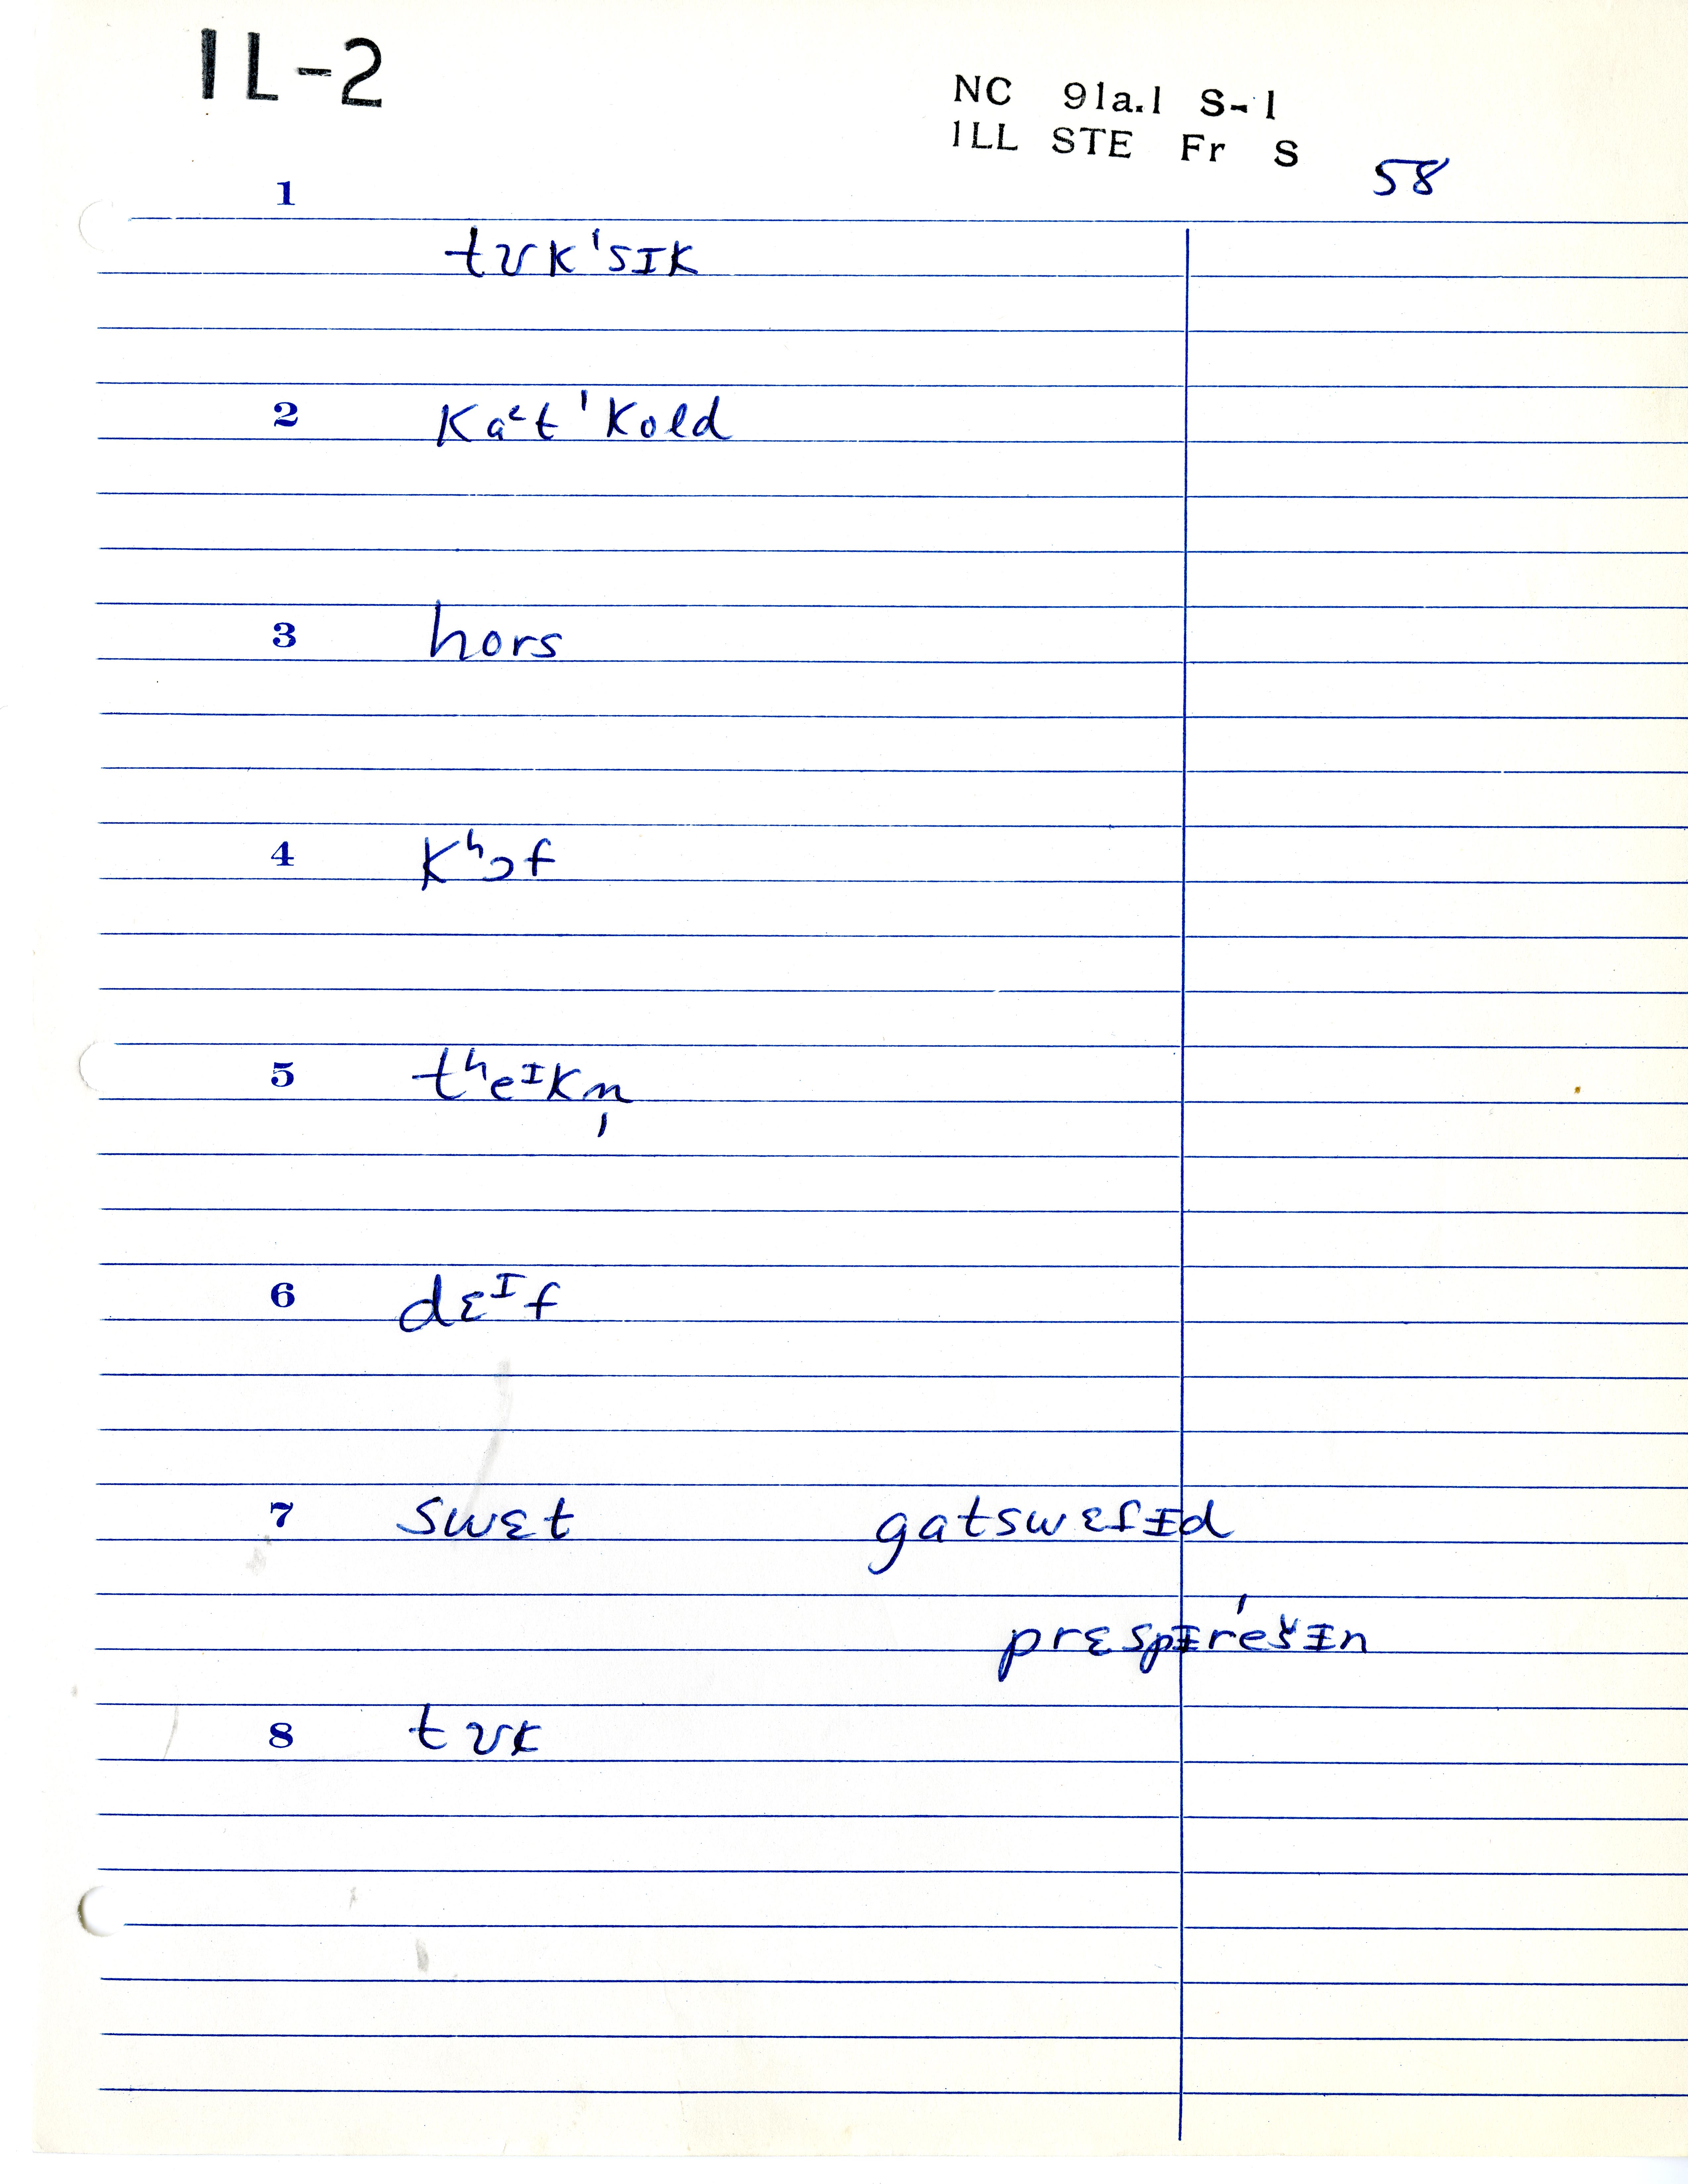 IL-2
NC 91a.1 S-1
ILL STE Fr S 58
1
tʊk ˈsɪk
2 kaᵋt ˈkold
3 hors
4 kʰɔf
5 tʰeᶦkn̩
6 dɛᶦf
7 swɛt gatswɛſɨd
prɛspɨréšɨn
8 tʊk